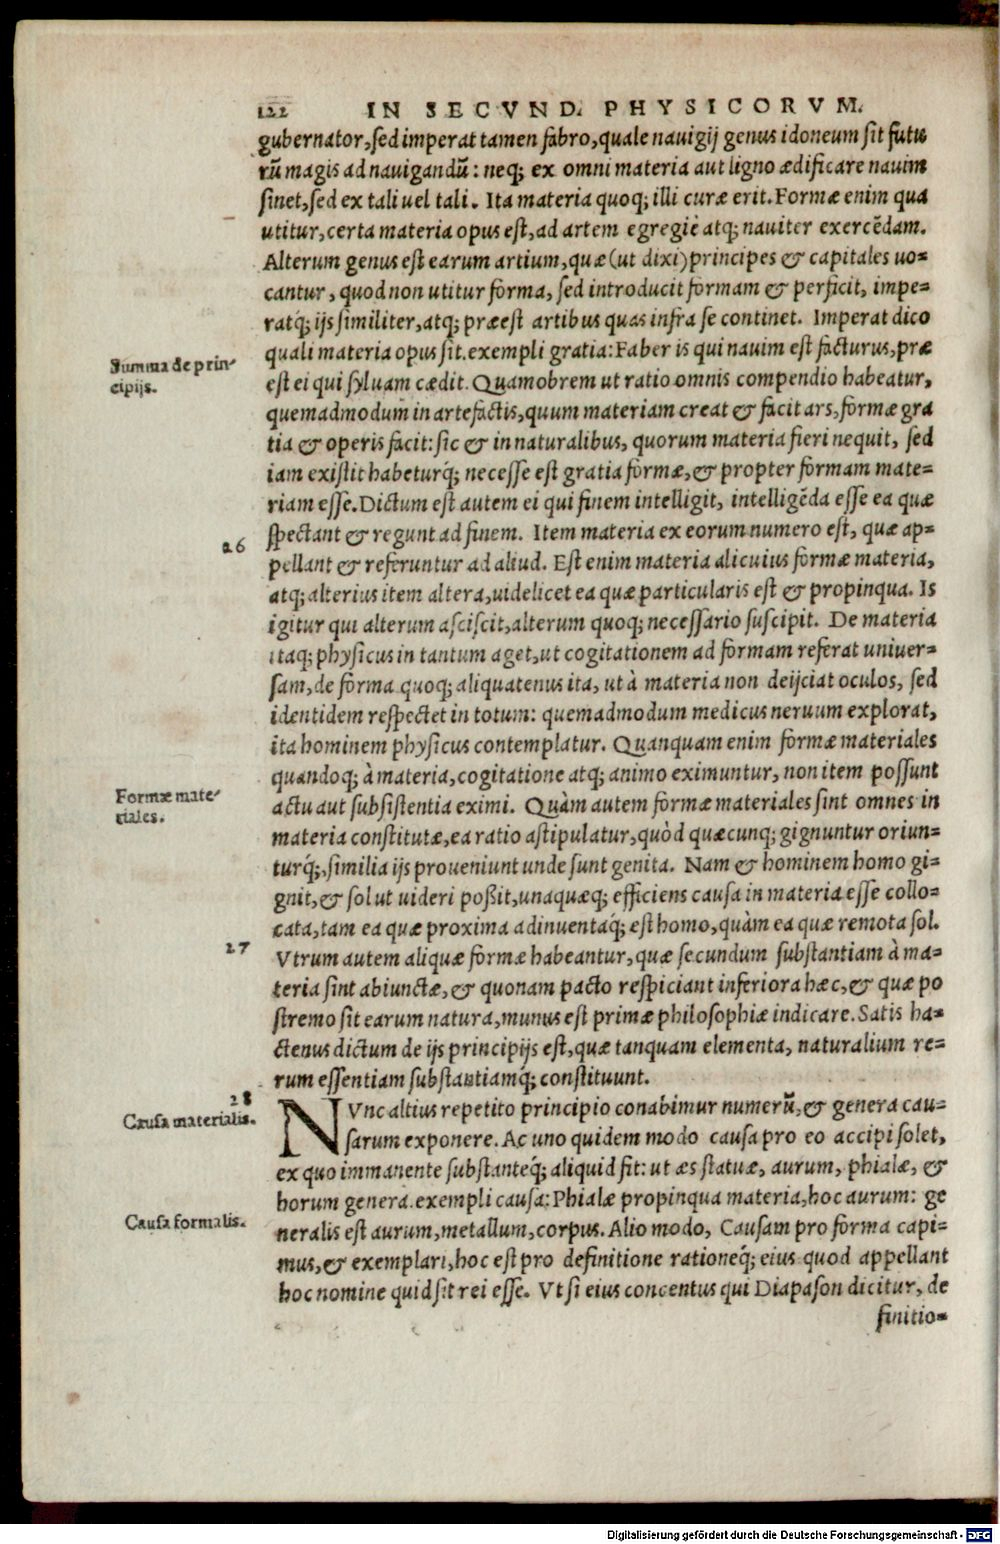 122 IN SECVND. PHYSICORVM.
gubernator, sed imperat tamen fabro, quale nauigij genus idoneum sit futu
rũ magis ad nauigandũ: neq; ex omni materia aut ligno ædificare nauim
sinet, sed ex tali uel tali. Ita materia quoq; illi curæ erit. Formæ enim qua
utitur, certa materia opus est, ad artem egregiè atq; nauiter exercẽdam.
Alterum genus est earum artium, quæ (ut dixi) principes & capitales uo=
cantur, quod non utitur forma, sed introducit formam & perficit, impe=
ratq́; ijs similiter, atq; præest artibus quas infra se continet. Imperat dico
quali materia opus sit. exempli gratia: Faber is qui nauim est facturus, præ
Summa de prin-
cipijs.
est ei qui syluam cædit. Quamobrem ut ratio omnis compendio habeatur,
quemadmodum in artefactis, quum materiam creat & facit ars, formæ gra
tia & operis facit: sic & in naturalibus, quorum materia fieri nequit, sed
iam existit habeturq́; necesse est gratia formæ, & propter formam mate=
riam esse. Dictum est autem ei qui finem intelligit, intelligẽda esse ea quæ
spectant & regunt ad finem. Item materia ex eorum numero est, quæ ap=
26
pellant & referuntur ad aliud. Est enim materia alicuius formæ materia,
atq; alterius item altera, uidelicet ea quæ particularis est & propinqua. Is
igitur qui alterum asciscit, alterum quoq; necessario suscipit. De materia
itaq; physicus in tantum aget, ut cogitationem ad formam referat uniuer=
sam, de forma quoq; aliquatenus ita, ut à materia non deijciat oculos, sed
identidem respectet in totum: quemadmodum medicus neruum explorat,
ita hominem physicus contemplatur. Quanquam enim formæ materiales
quandoq; à materia, cogitatione atq; animo eximuntur, non item possunt
Formæ mate-
riales.
actu aut subsistentia eximi. Quàm autem formæ materiales sint omnes in
materia constitutæ, ea ratio astipulatur, quòd quæcunq; gignuntur oriun=
turq́;, similia ijs proueniunt unde sunt genita. Nam & hominem homo gi=
gnit, & sol ut uideri poßit, unaquæq; efficiens causa in materia esse collo=
cata, tam ea quæ proxima adinuentaq́; est homo, quàm ea quæ remota sol.
27
Vtrum autem aliquæ formæ habeantur, quæ secundum substantiam à ma=
teria sint abiunctæ, & quonam pacto respiciant inferiora hæc, & quæ po
stremo sit earum natura, munus est primæ philosophiæ indicare. Satis ha=
ctenus dictum de ijs principijs est, quæ tanquam elementa, naturalium re=
rum essentiam substantiamq́; constituunt.
28
Causa materialis.
NVnc altius repetito principio conabimur numerũ, & genera cau=
sarum exponere. Ac uno quidem modo causa pro eo accipi solet,
ex quo immanente substanteq́; aliquid fit: ut æs statuæ, aurum, phialæ, &
horum genera. exempli causa: Phialæ propinqua materia, hoc aurum: ge
Causa formalis.
neralis est aurum, metallum, corpus. Alio modo, Causam pro forma capi=
mus, & exemplari, hoc est pro definitione rationeq́; eius quod appellant
hoc nomine quid sit rei esse. Vt si eius concentus qui Diapason dicitur, de
finitio=
Digitalisierung gefördert durch die Deutsche Forschungsgemeinschaft - DFG